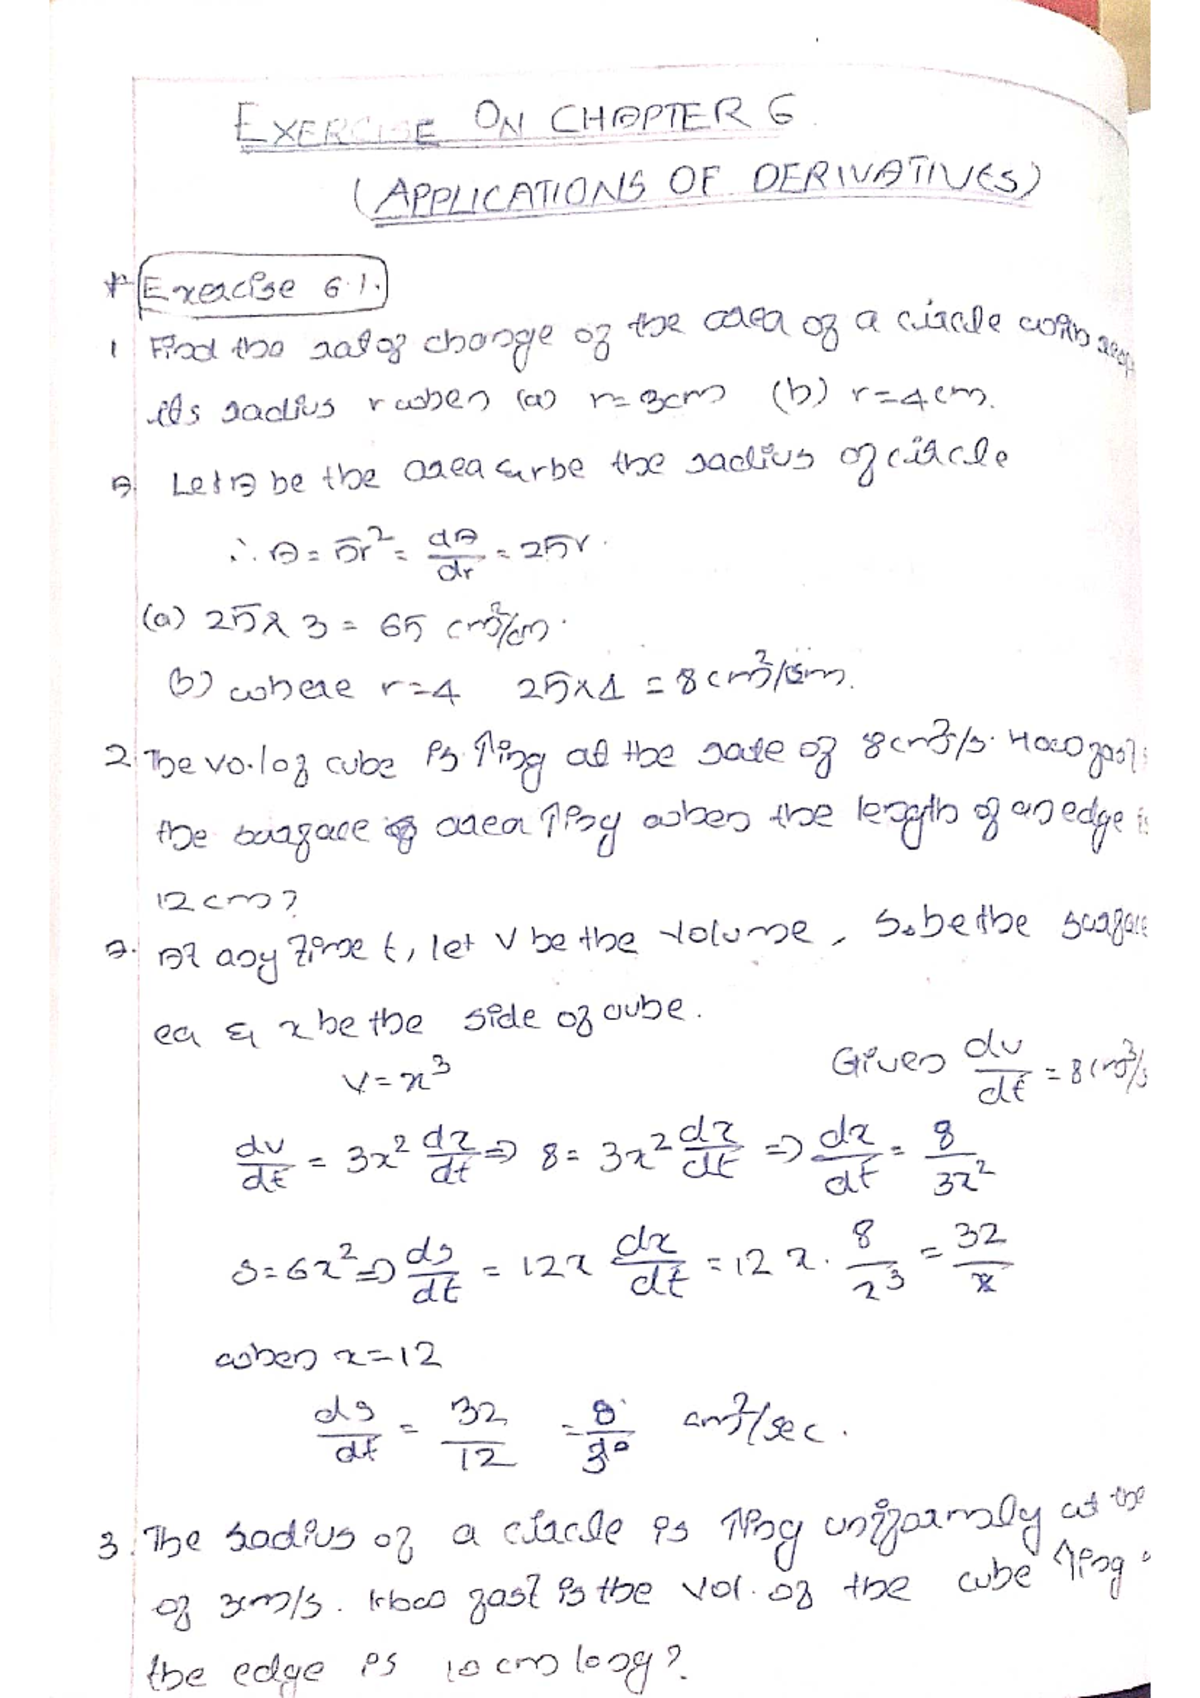 EXERCISE ON CHAPTER 6
(APPLICATIONS OF DERIVATIVES)
* Exercise 6.1.
1 Find the rat of change of the area of a circle with
its radius r when (a) r=3cm (b) r=4cm.
A. Let A be the area & r be the radius of circle
∴ A = πr² = dA/dr = 2πr.
(a) 2π × 3 = 6π cm²/cm.
(b) where r=4 2π×4 = 8 cm²/cm.
2. The vo.l of cube is ↑ing at the rate of 8cm³/s. How fast is
the surface of area ↑ing when the length of an edge is
12cm?
A. At any time t, let V be the volume, S be the surface
ea & x be the side of cube.
V=x³ Given dv/dt = 8cm³/s
dv/dt = 3x² dx/dt ⇒ 8 = 3x² dx/dt ⇒ dx/dt = 8/3x²
S=6x² ⇒ ds/dt = 12x dx/dt = 12x. 8/x³ = 32/x
when x=12
ds/dt = 32/12 = 8/3 cm²/sec.
3. The radius of a circle is ↑ing uniformly at the
of 3cm/s. How fast is the vol. of the cube ↑ing
the edge is 10cm long?